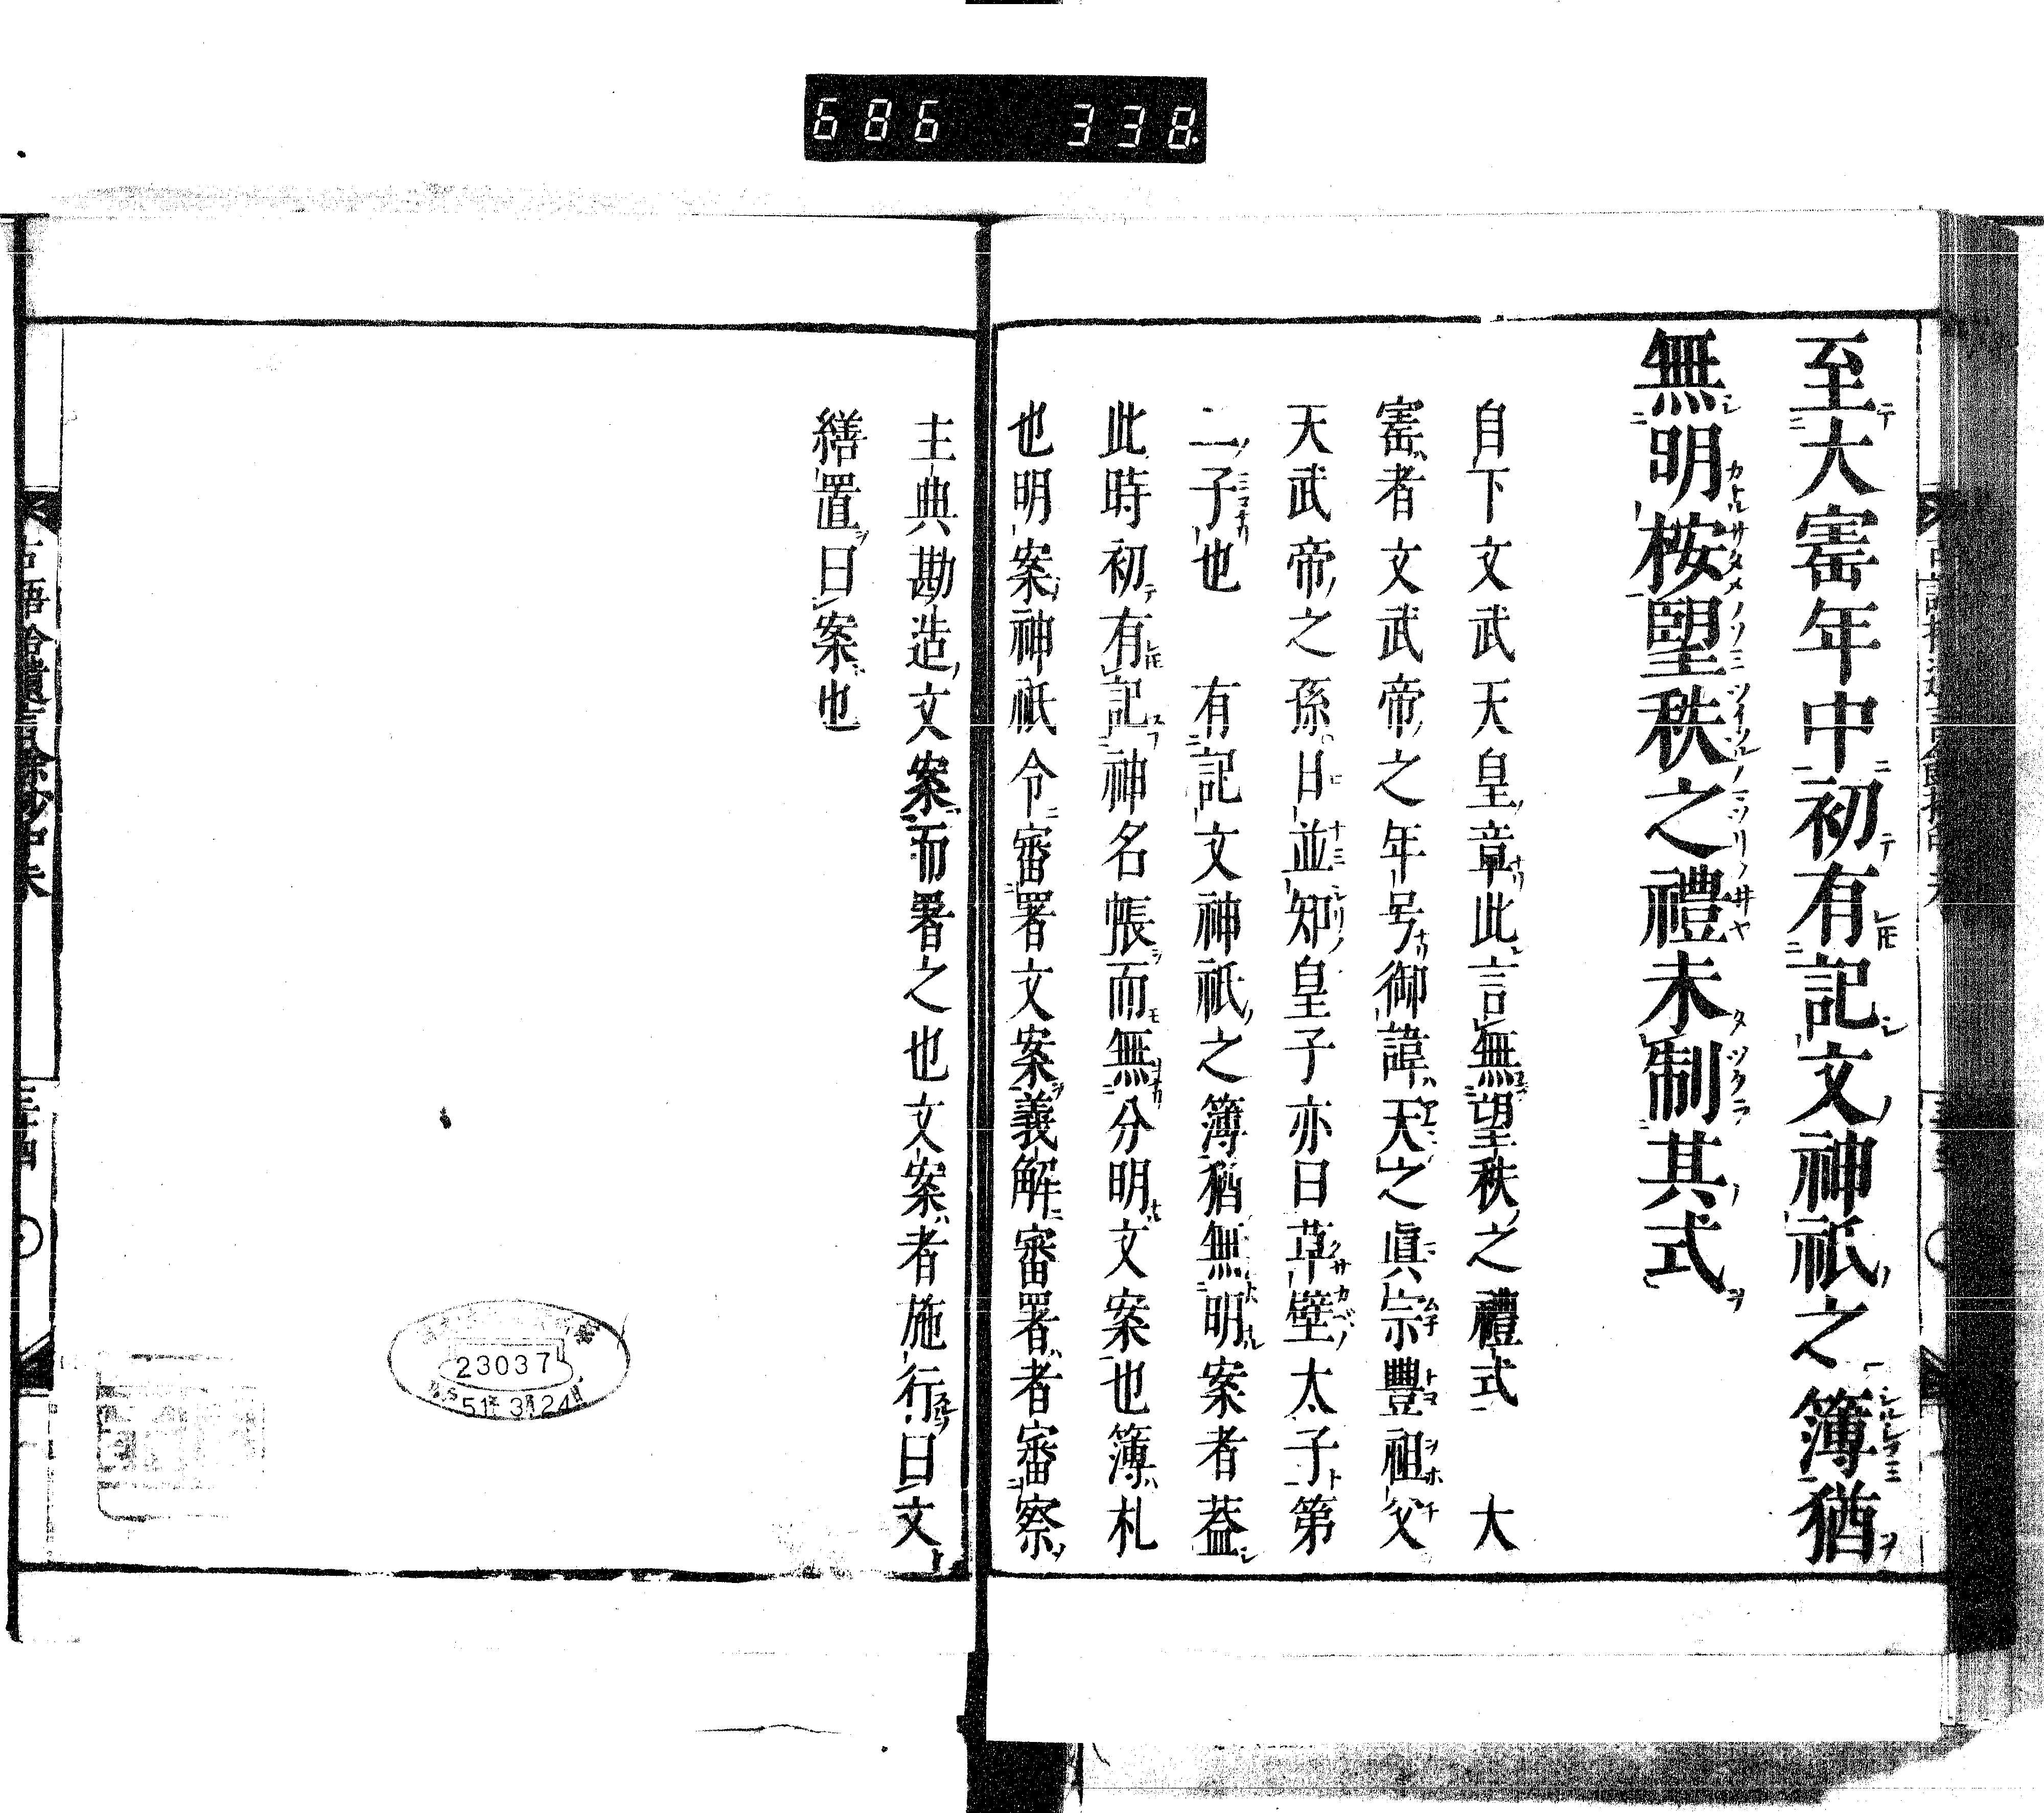 686 338
至大寚年中初有記文神祇之簿猶
無明桉望秩之禮未制其式
自下文武天皇章此言無望秩之禮式　大
寚者文武帝之年号御諱天之眞宗豐祖父
天武帝之孫日並知皇子亦曰草壁太子第
二子也　有記文神祇之簿猶無明案者蓋
此時初有記神名帳而無分明文案也簿札
也明案神祇令審署文案義解審署者審察
主典勘造文案而署之也文案者施行曰文
繕置曰案也
古語拾遺言餘抄中末
23037
51 3 24